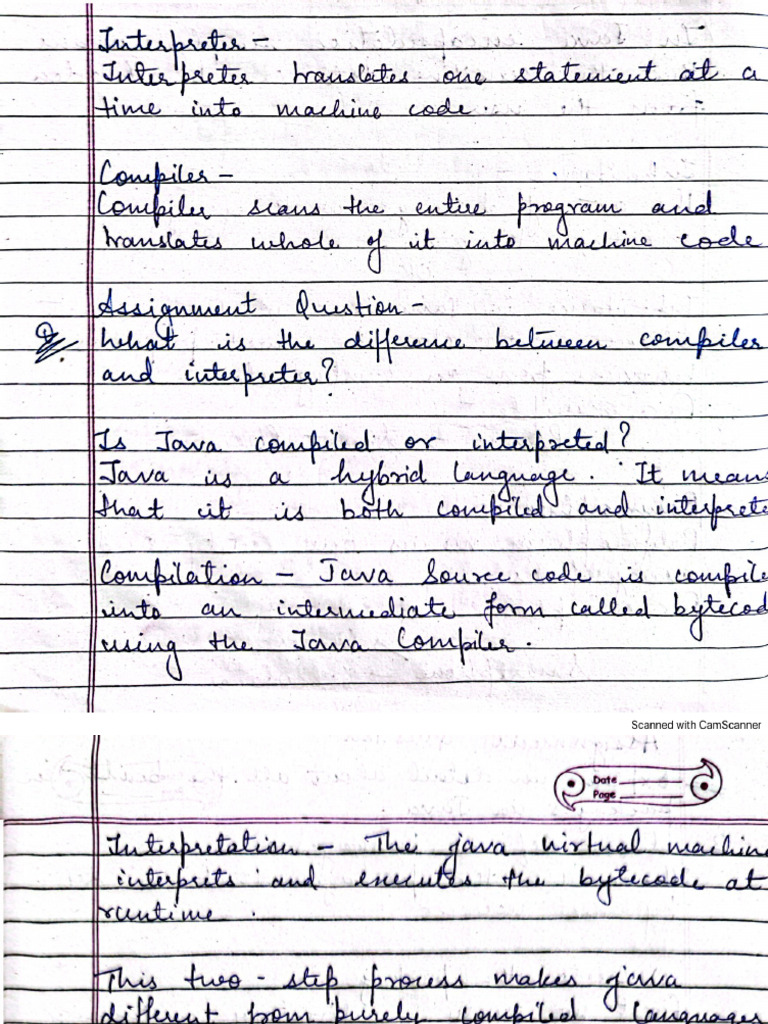 Interpreter -
Interpreter translates one statement at a
time into machine code.
Compiler -
Compiler scans the entire program and
translates whole of it into machine code
Assignment Question -
Q. What is the difference between compiler
and interpreter?
Is Java compiled or interpreted?
Java is a hybrid language. It means
that it is both compiled and interprete
Compilation - Java Source code is compile
into an intermediate form called bytecod
using the Java Compiler.
Scanned with CamScanner
Date
Page
Interpretation - The java virtual machine
interprets and executes the bytecode at
runtime.
This two-step process makes java
different from purely compiled languages